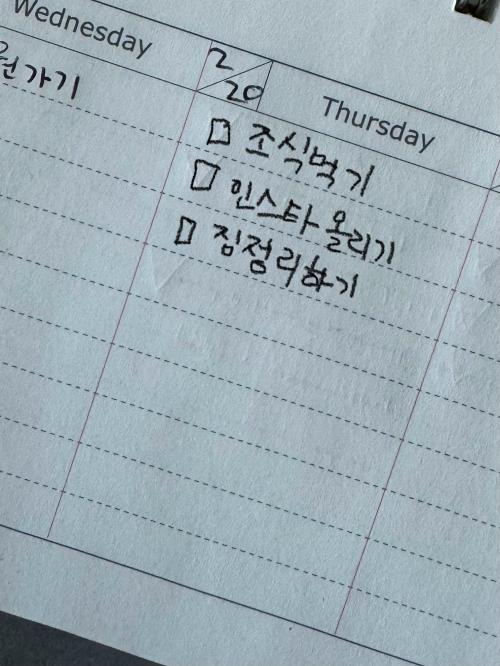 Wednesday
가기
2/20
Thursday
□ 조식먹기
□ 인스타 올리기
□ 짐정리하기